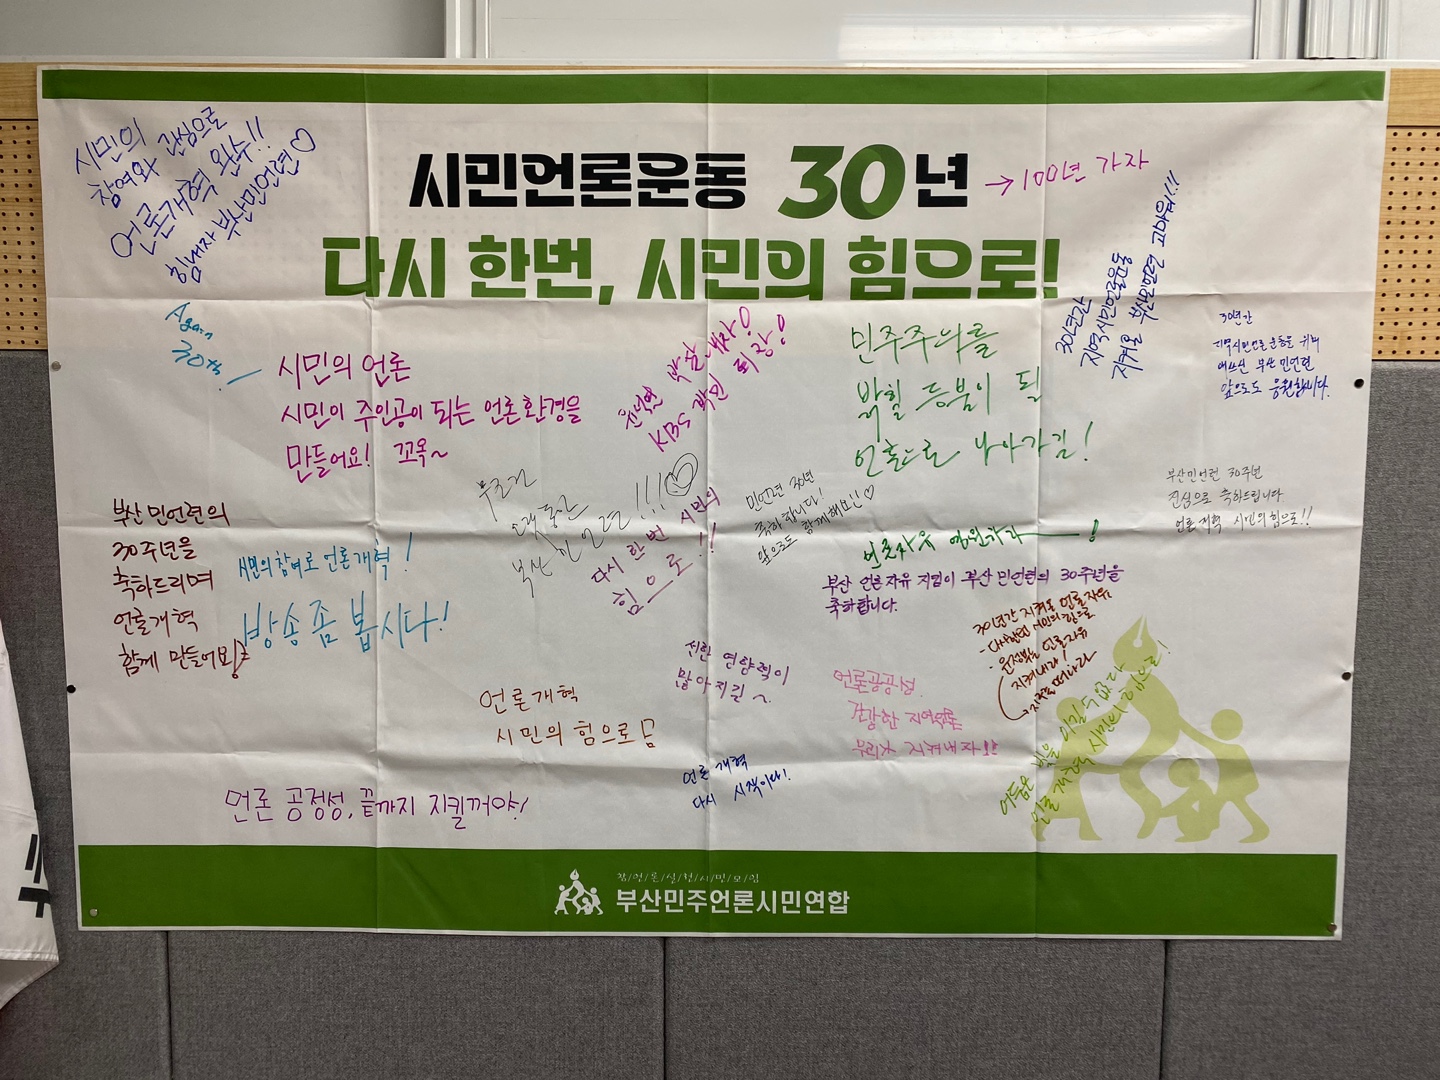 시민언론운동 30년
→100년 가자
다시 한번, 시민의 힘으로!
시민의
참여와 관심으로
언론개혁 완수!!
힘내자 부산민언련♡
Again
30th
시민의 언론
시민이 주인공이 되는 언론환경을
만들어요! 꼬옥~
윤석열 박살내자!
KBS 박민 퇴장!
민주주의를
밝힐 등불이 될
언론으로 나아가길!
30년간
지역시민언론운동을
지켜온 부산민언련 고마워!!!
30년간
지역시민언론운동을 위해
애쓰신 부산민언련
앞으로도 응원합니다.
부산민언련 30주년
진심으로 축하드립니다
언론개혁 시민의 힘으로!!
부산민언련의
30주년을
축하드리며
언론개혁
함께 만들어요
시민의 참여로 언론개혁!
방송 좀 봅시다!
부산 민언련!!!♡
다시 한번 시민의
힘으로!!
민언련 30년
축하합니다!
앞으로도 함께해요!!♡
언론자유 영원가라!
부산 언론자유 지킴이 부산민언련의 30주년을
축하합니다.
30년간 지켜온 언론자유,
- 다시한번 시민의 힘으로
지켜내자!
선한 영향력이
많아지길~
언론공공성
건강한 지역언론
우리가 지켜내자
어둠은 빛을 이길 수 없다
언론개혁 시민의 힘으로!
언론개혁
시민의 힘으로
언론개혁
다시 시작이다!
언론 공정성, 끝까지 지킬꺼야!
참/언/론/실/천/시/민/모/임
부산민주언론시민연합